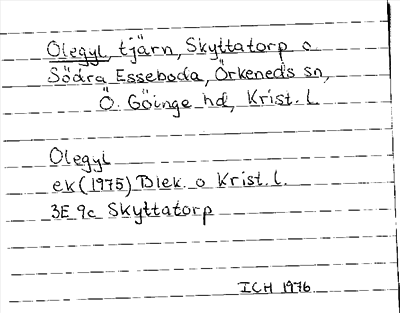 Olegyl, tjärn, Skyttatorp o
Södra Esseboda, Örkeneds sn,
Ö. Göinge hd, Krist. l.
Olegyl
ek (1975) Blek. o Krist. l.
3E 9c Skyttatorp
ICH 1976